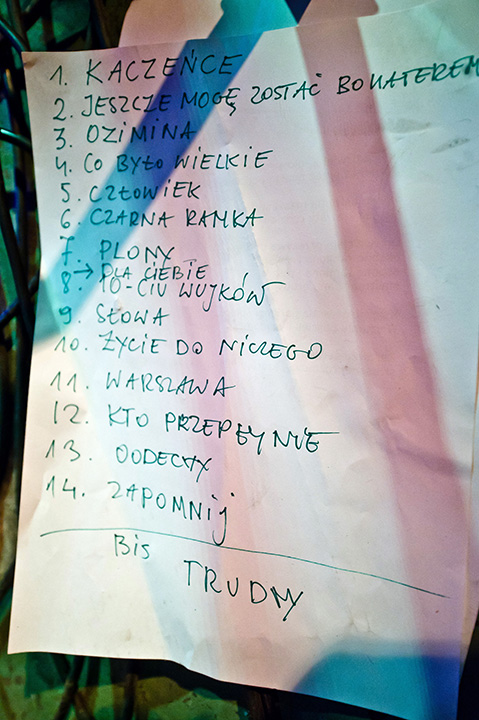 1. KACZEŃCE
2. JESZCZE MOGĘ ZOSTAĆ BOHATEREM
3. OZIMINA
4. CO BYŁO WIELKIE
5. CZŁOWIEK
6. CZARNA RAMKA
7. PLONY
→ DLA CIEBIE
8. 10-CIU WUJKÓW
9. SŁOWA
10. ŻYCIE DO NICZEGO
11. WARSZAWA
12. KTO PRZEPŁYNIE
13. ODDECHY
14. ZAPOMNIJ
BIS
TRUDNY